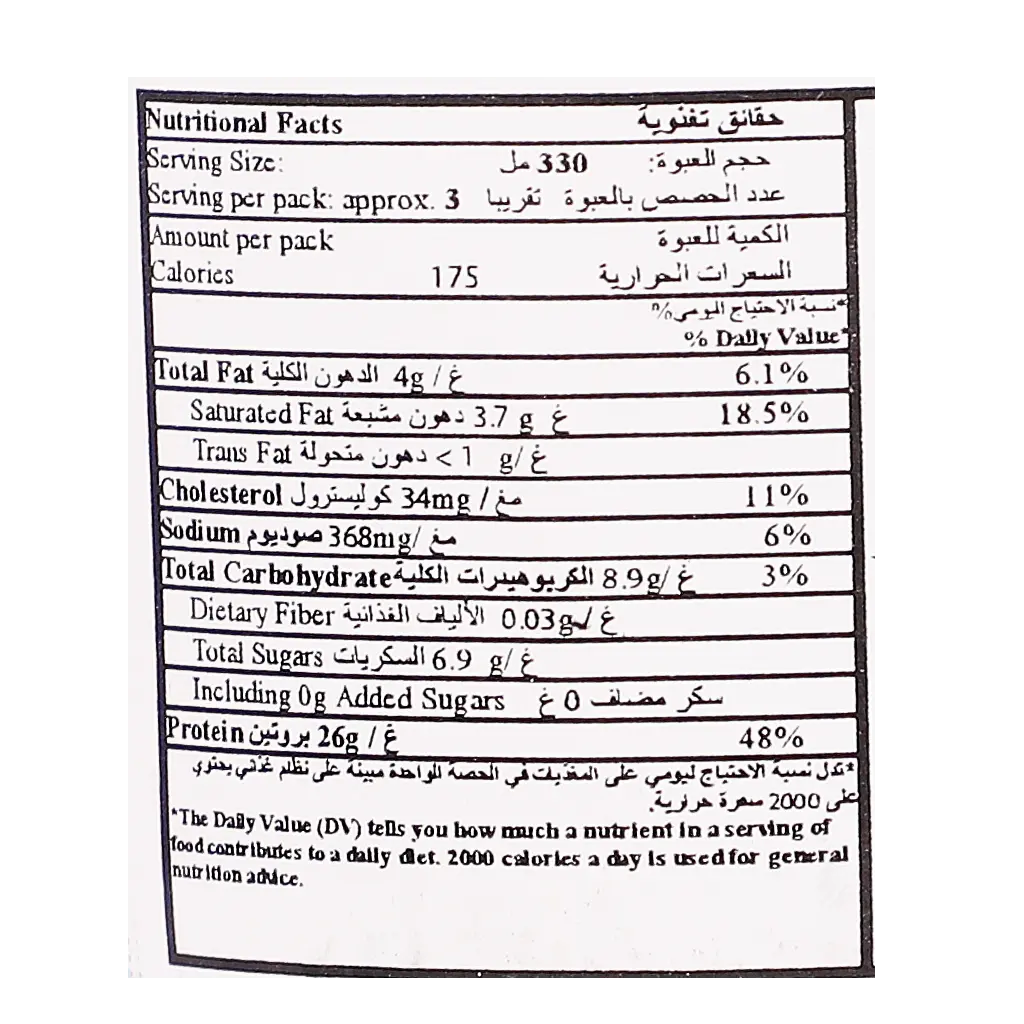 Nutritional Facts حقائق تغذوية
Serving Size: 330 مل حجم للعبوة:
Serving per pack: approx. 3 تقريبا عدد الحصص بالعبوة
Amount per pack الكمية للعبوة
Calories 175 السعرات الحرارية
*نسبة الاحتياج اليومي%
% Daily Value*
Total Fat الدهون الكلية 4g / غ 6.1%
Saturated Fat دهون مشبعة 3.7 g غ 18.5%
Trans Fat دهون متحولة < 1 g/ غ
Cholesterol كوليسترول 34mg / مغ 11%
Sodium صوديوم 368mg/ مغ 6%
Total Carbohydrate الكربوهيدرات الكلية 8.9g/ غ 3%
Dietary Fiber الألياف الغذائية 0.03g/ غ
Total Sugars السكريات 6.9 g/ غ
Including 0g Added Sugars سكر مضاف 0 غ
Protein بروتين 26g / غ 48%
*تدل نسبة الاحتياج ليومي على المغذيات في الحصة الواحدة مبينة على نظام غذائي يحتوي
على 2000 سعرة حرارية.
*The Daily Value (DV) tells you how much a nutrient in a serving of
food contributes to a daily diet. 2000 calories a day is used for general
nutrition advice.